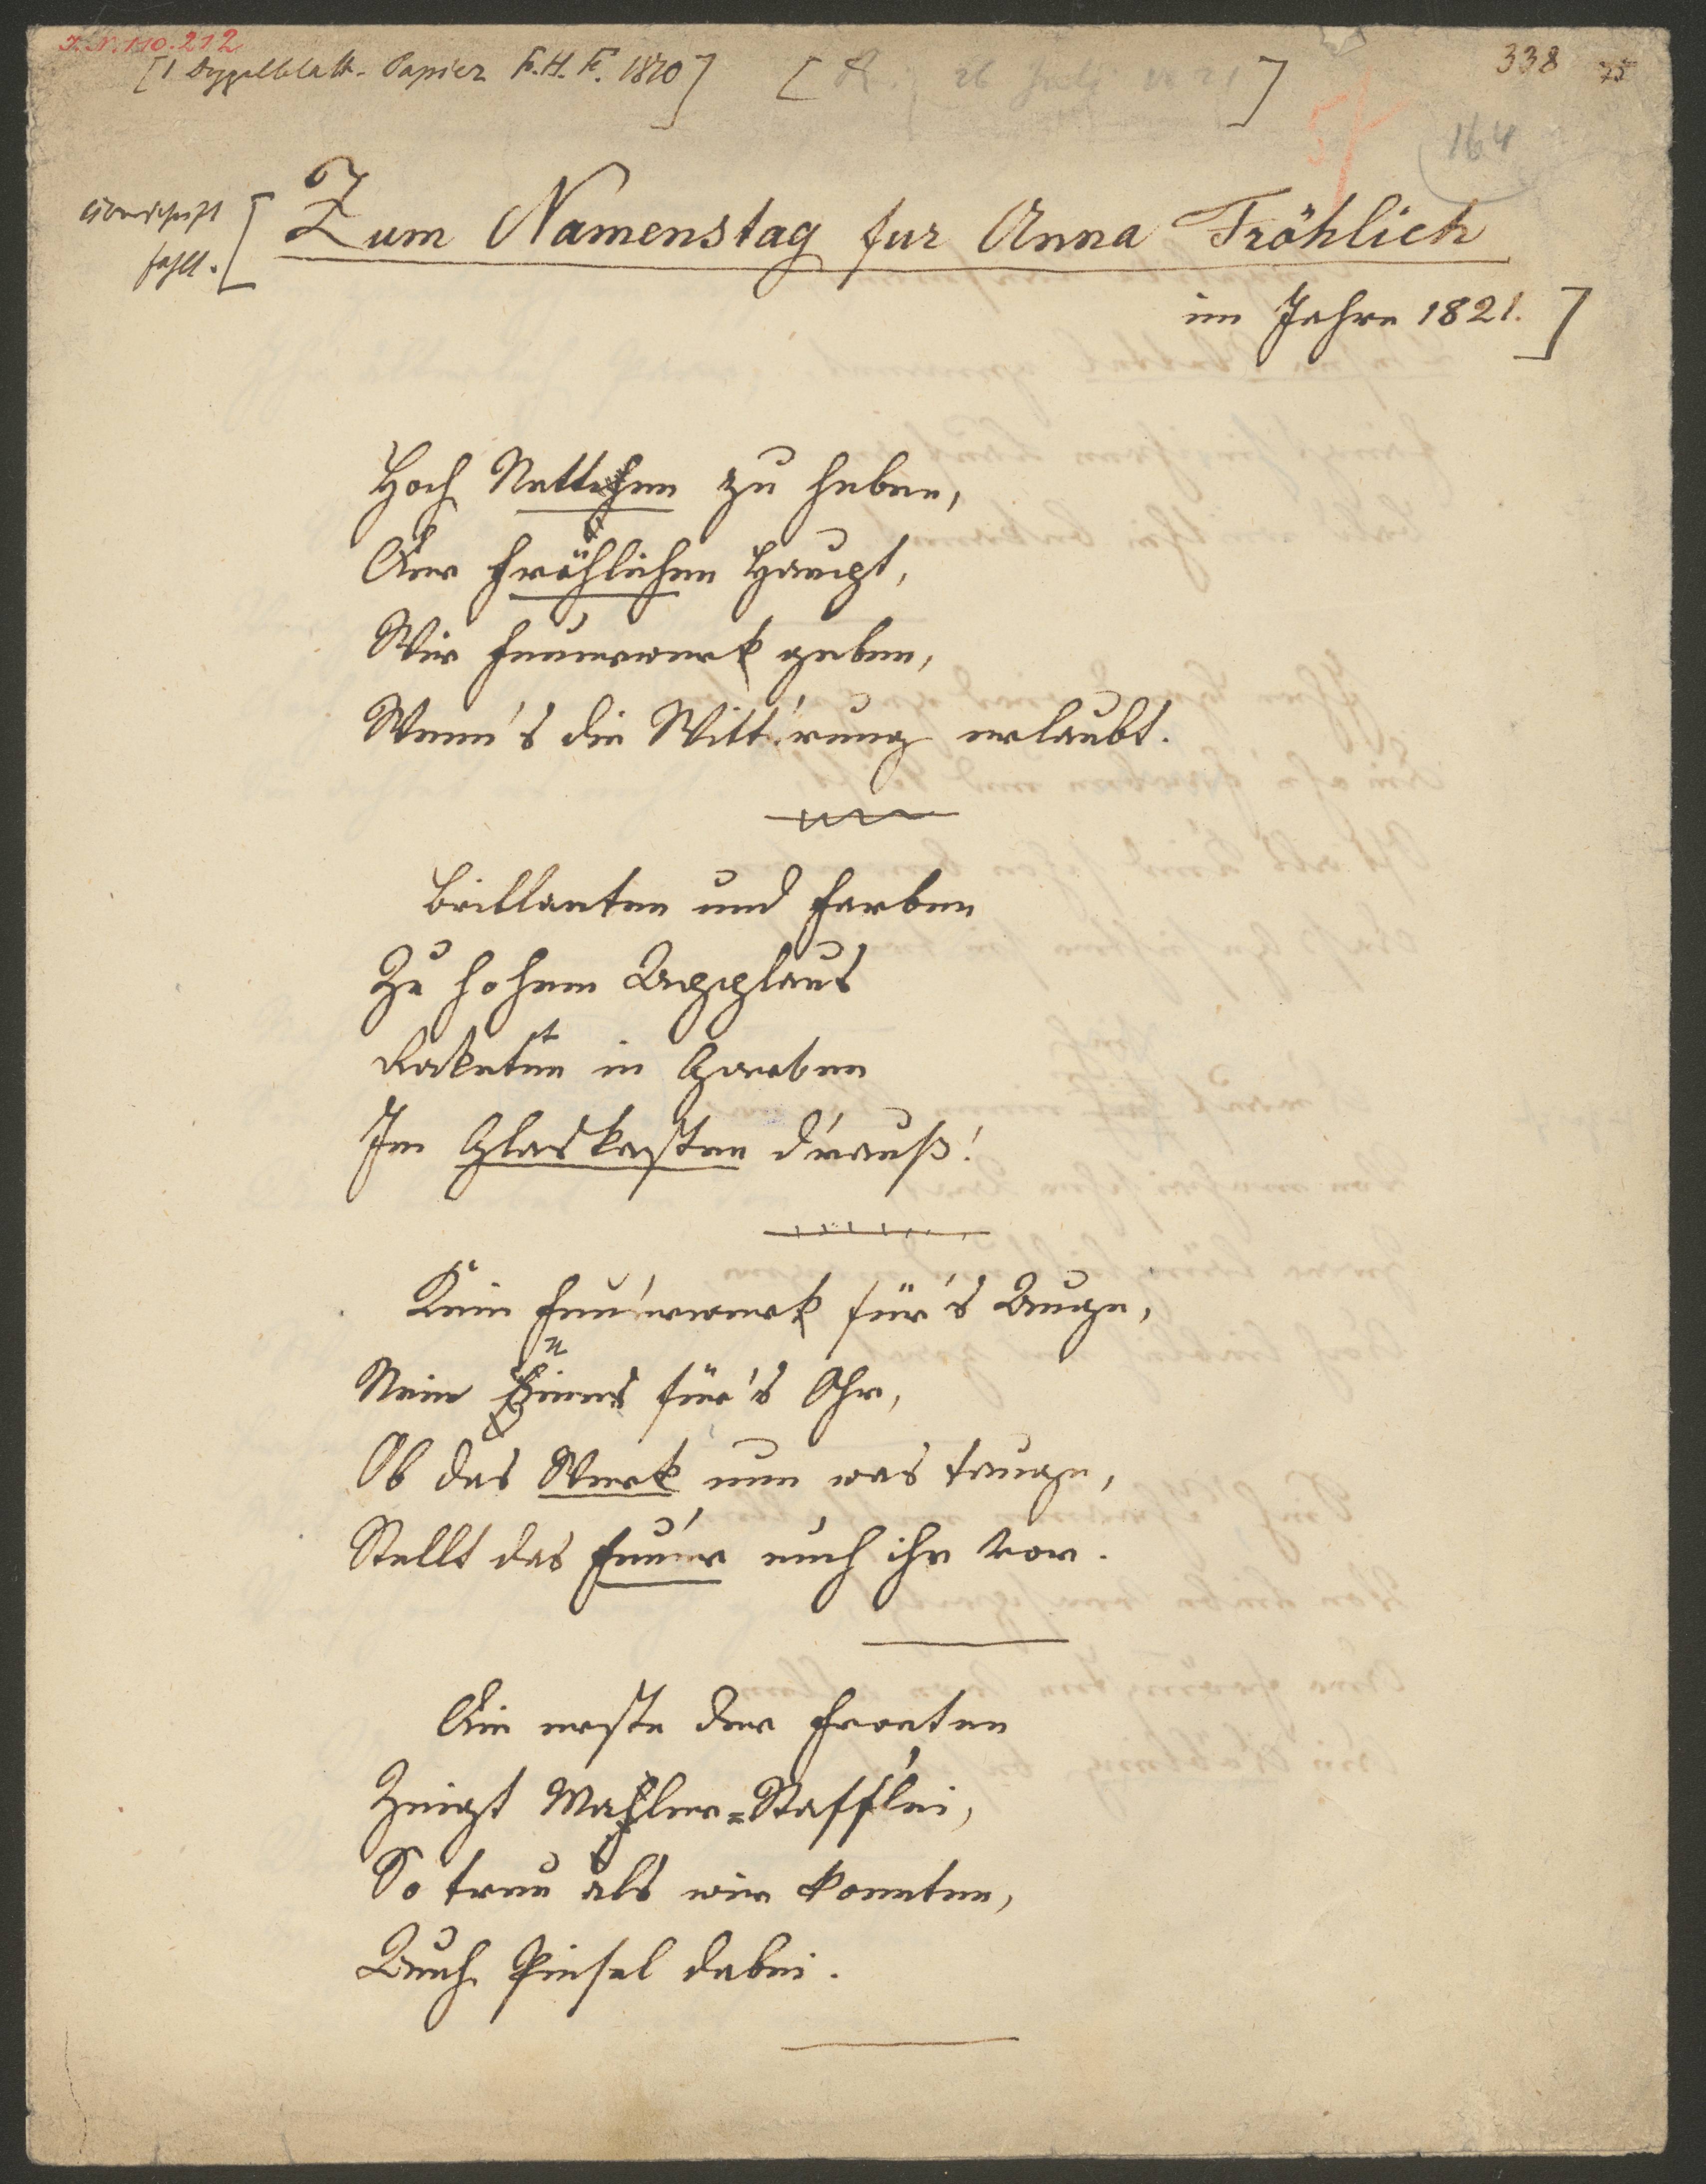 I.N. 110.212
[1 Doppelblatt. Papier F.H.F. 1820]
[A. 26 Juli 1821]
338 75
164
Überschrift
fehlt.
[Zum Namenstag fur Anna Fröhlich
im Jahre 1821.]
Hoch Nettchen zu heben,
Der Fröhlichen Haupt,
Wir Feuerwerk geben,
Wenn's die Witt'rung erlaubt.
Brillanten und Farben
Zu hohem Applaus
Raketen in Garben
Im Glaskasten d'rauß!
Kein Feu'erwerk für's Auge,
Nein Eines für's Ohr,
Ob das Werk nun was tauge,
Stellt das Feuer euch ihr vor.
Die erste der Fronten
Zeigt Mahler=Staff'lei,
So treu als wir konnten,
Auch Pinsel dabei.